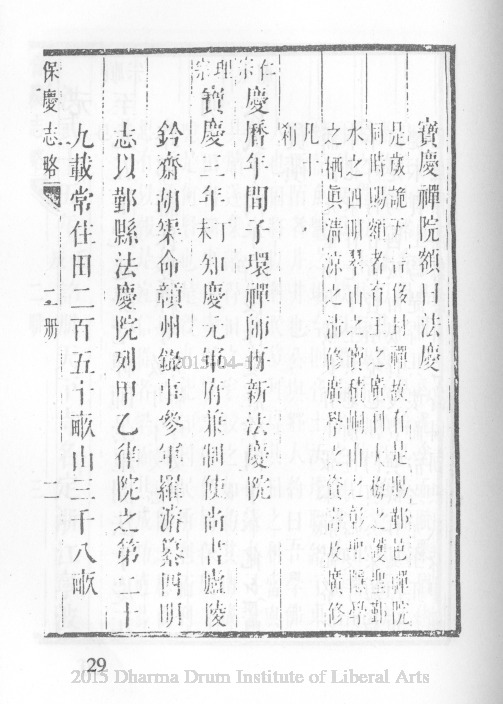 寶慶禪院額曰法慶
是歲詭天書後封禪故有是賜鄞邑禪院
同時賜額者有王之廣利之護聖鄞
水之西明琴山之寶積峒山之彰聖隱學
之栖眞清涼之清修廣學之實濟及廣修
凡十刹
仁宗慶曆年間子環禪師再新法慶院
理宗寶慶三年知慶元軍府兼制使尚書廬陵
鈐齋胡榘命贛州錄事參軍羅濬纂四明
志以鄞縣法慶院列甲乙律院之第二十
九載常住田二百五十畝山三千八畝
保慶志略 一册 二
2015-04-
29
2015 Dharma Drum Institute of Liberal Arts